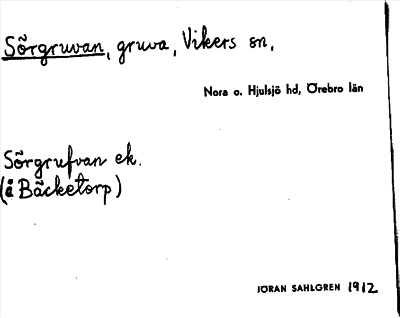 Sörgruvan, gruva, Vikers sn,
Nora o. Hjulsjö hd, Örebro län
Sörgrufvan ek.
(å Bäcketorp)
JÖRAN SAHLGREN 1912